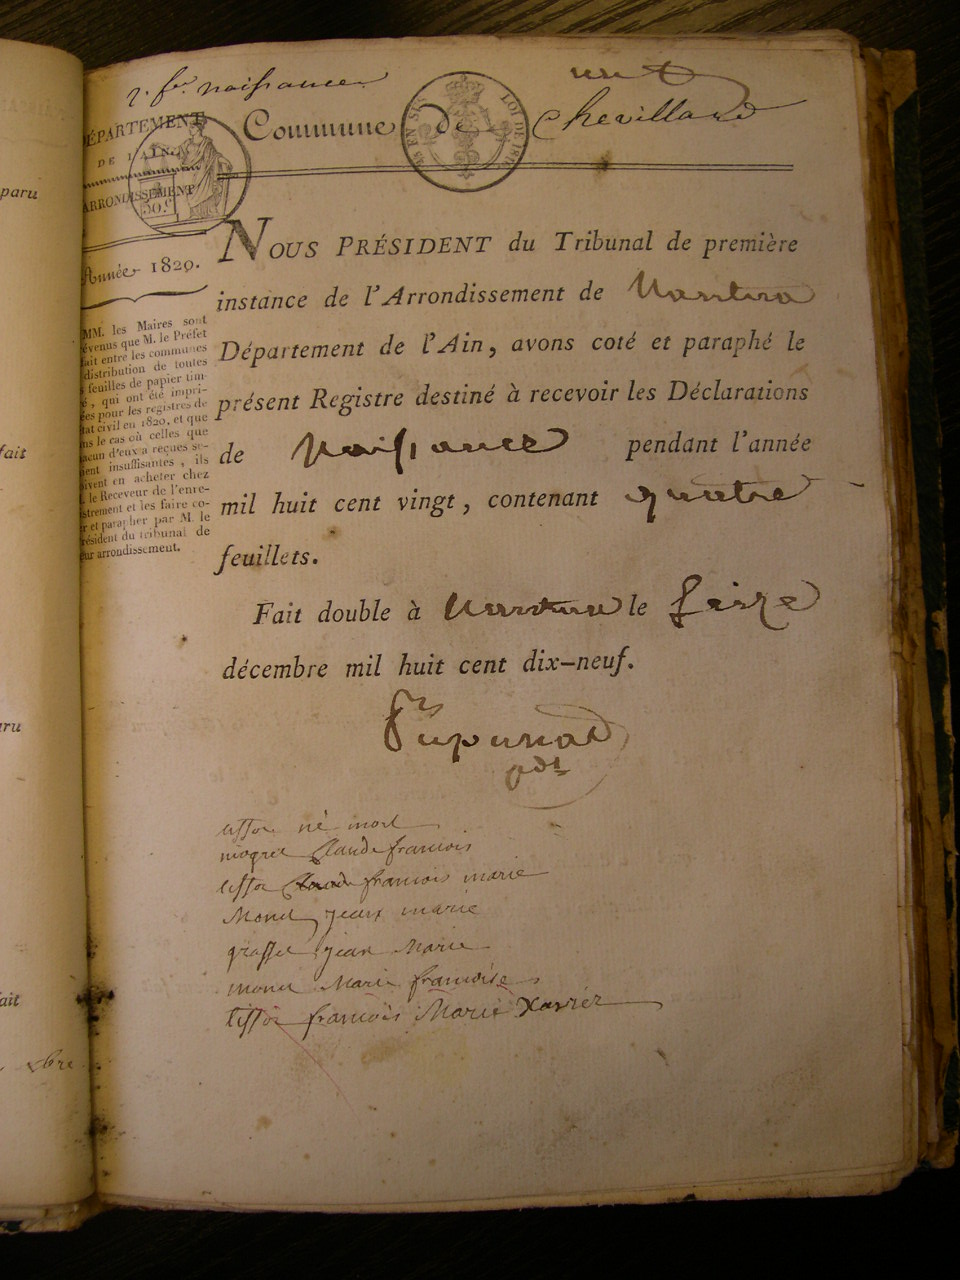 naissance
un
DÉPARTEMENT
DE L'AIN.
ARRONDISSEMENT
50.c
Commune de Chevillard
LOI DE 1816
Année 1820.
MM. les Maires sont
évenus que M. le Préfet
fait entre les communes
distribution de toutes
feuilles de papier tim-
é, qui ont été impri-
ées pour les registres de
tat civil en 1820, et que
ns le cas où celles que
acun d'eux a reçues se-
ient insuffisantes, ils
oivent en acheter chez
. le Receveur de l'enre-
istrement et les faire co-
er et parapher par M. le
résident du tribunal de
eur arrondissement.
NOUS PRÉSIDENT du Tribunal de première
instance de l'Arrondissement de Nantua
Département de l'Ain, avons coté et paraphé le
présent Registre destiné à recevoir les Déclarations
de Naissance pendant l'année
mil huit cent vingt, contenant quatre
feuillets.
Fait double à Nantua le seize
décembre mil huit cent dix-neuf.
pdt
tissot né mort
Claude francois
tissot Claude francois marie
Monet jean marie
grosset jean Marie
monet Marie francoise
tissot francois Marie Xavier
paru
fait
aru
ait
xbre